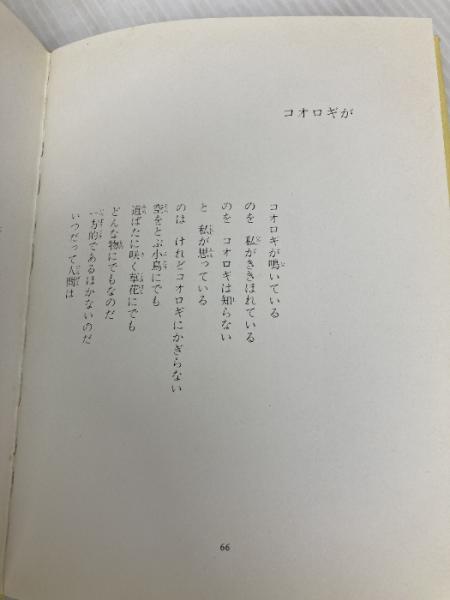 コオロギが
コオロギが鳴いている
のを 私がききほれている
のを コオロギは知らない
と 私が思っている
のは けれどコオロギにかぎらない
空をとぶ小鳥にでも
道ばたに咲く草花にでも
どんな物にでもなのだ
一方的であるほかないのだ
いつだって人間は
66